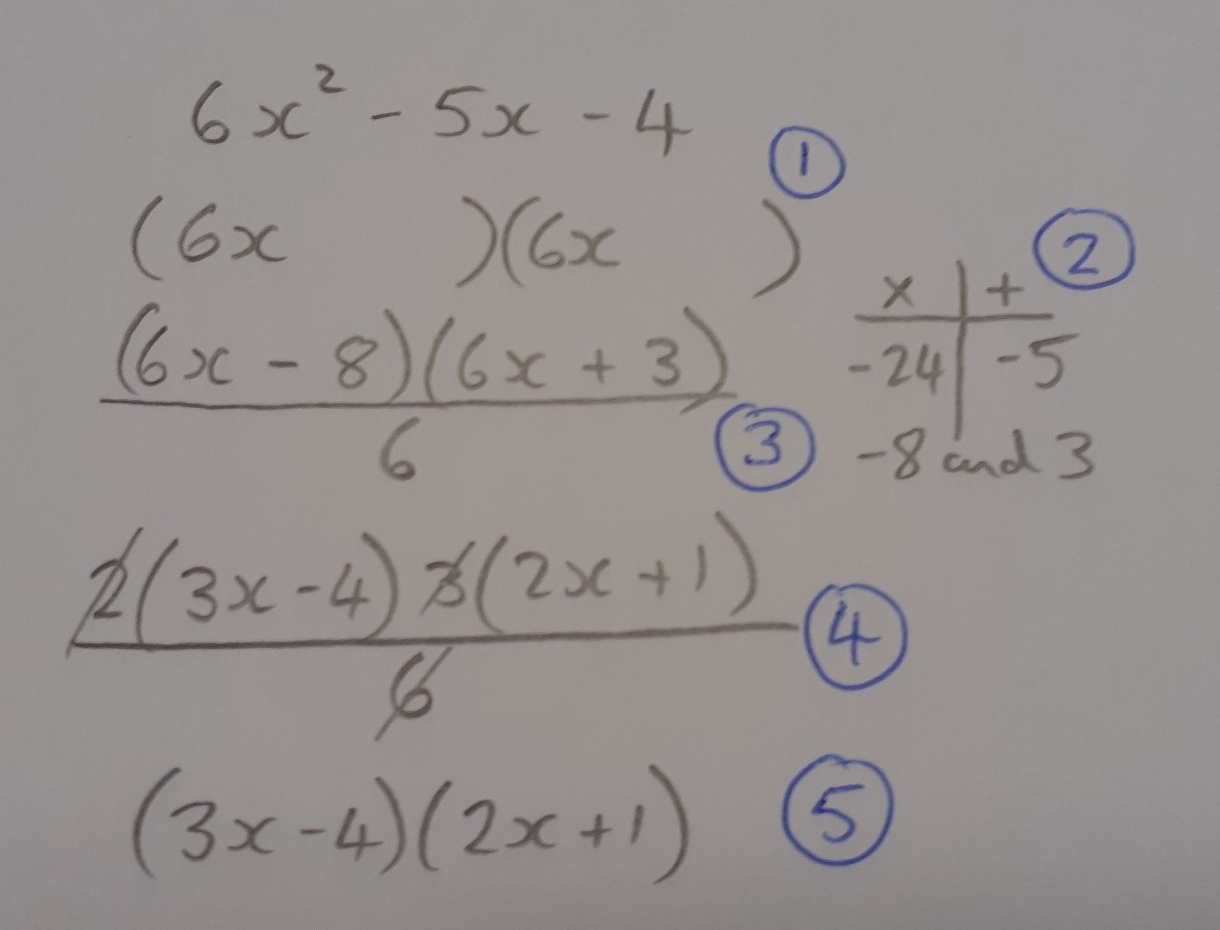 6x² - 5x - 4
①
(6x )(6x )
②
× | +
-24 | -5
-8 and 3
(6x - 8)(6x + 3)
6
③
2(3x - 4) 3(2x + 1)
6
④
(3x - 4)(2x + 1)
⑤